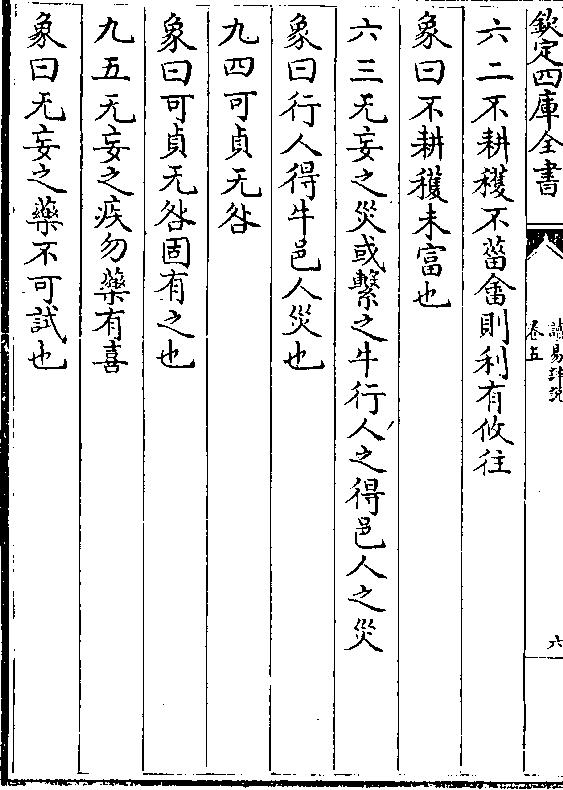 欽定四庫全書
讀易詳說
卷五
六
六二不耕穫不菑畬則利有攸往
象曰不耕穫未富也
六三无妄之災或繫之牛行人之得邑人之災
象曰行人得牛邑人災也
九四可貞无咎
象曰可貞无咎固有之也
九五无妄之疾勿藥有喜
象曰无妄之藥不可試也